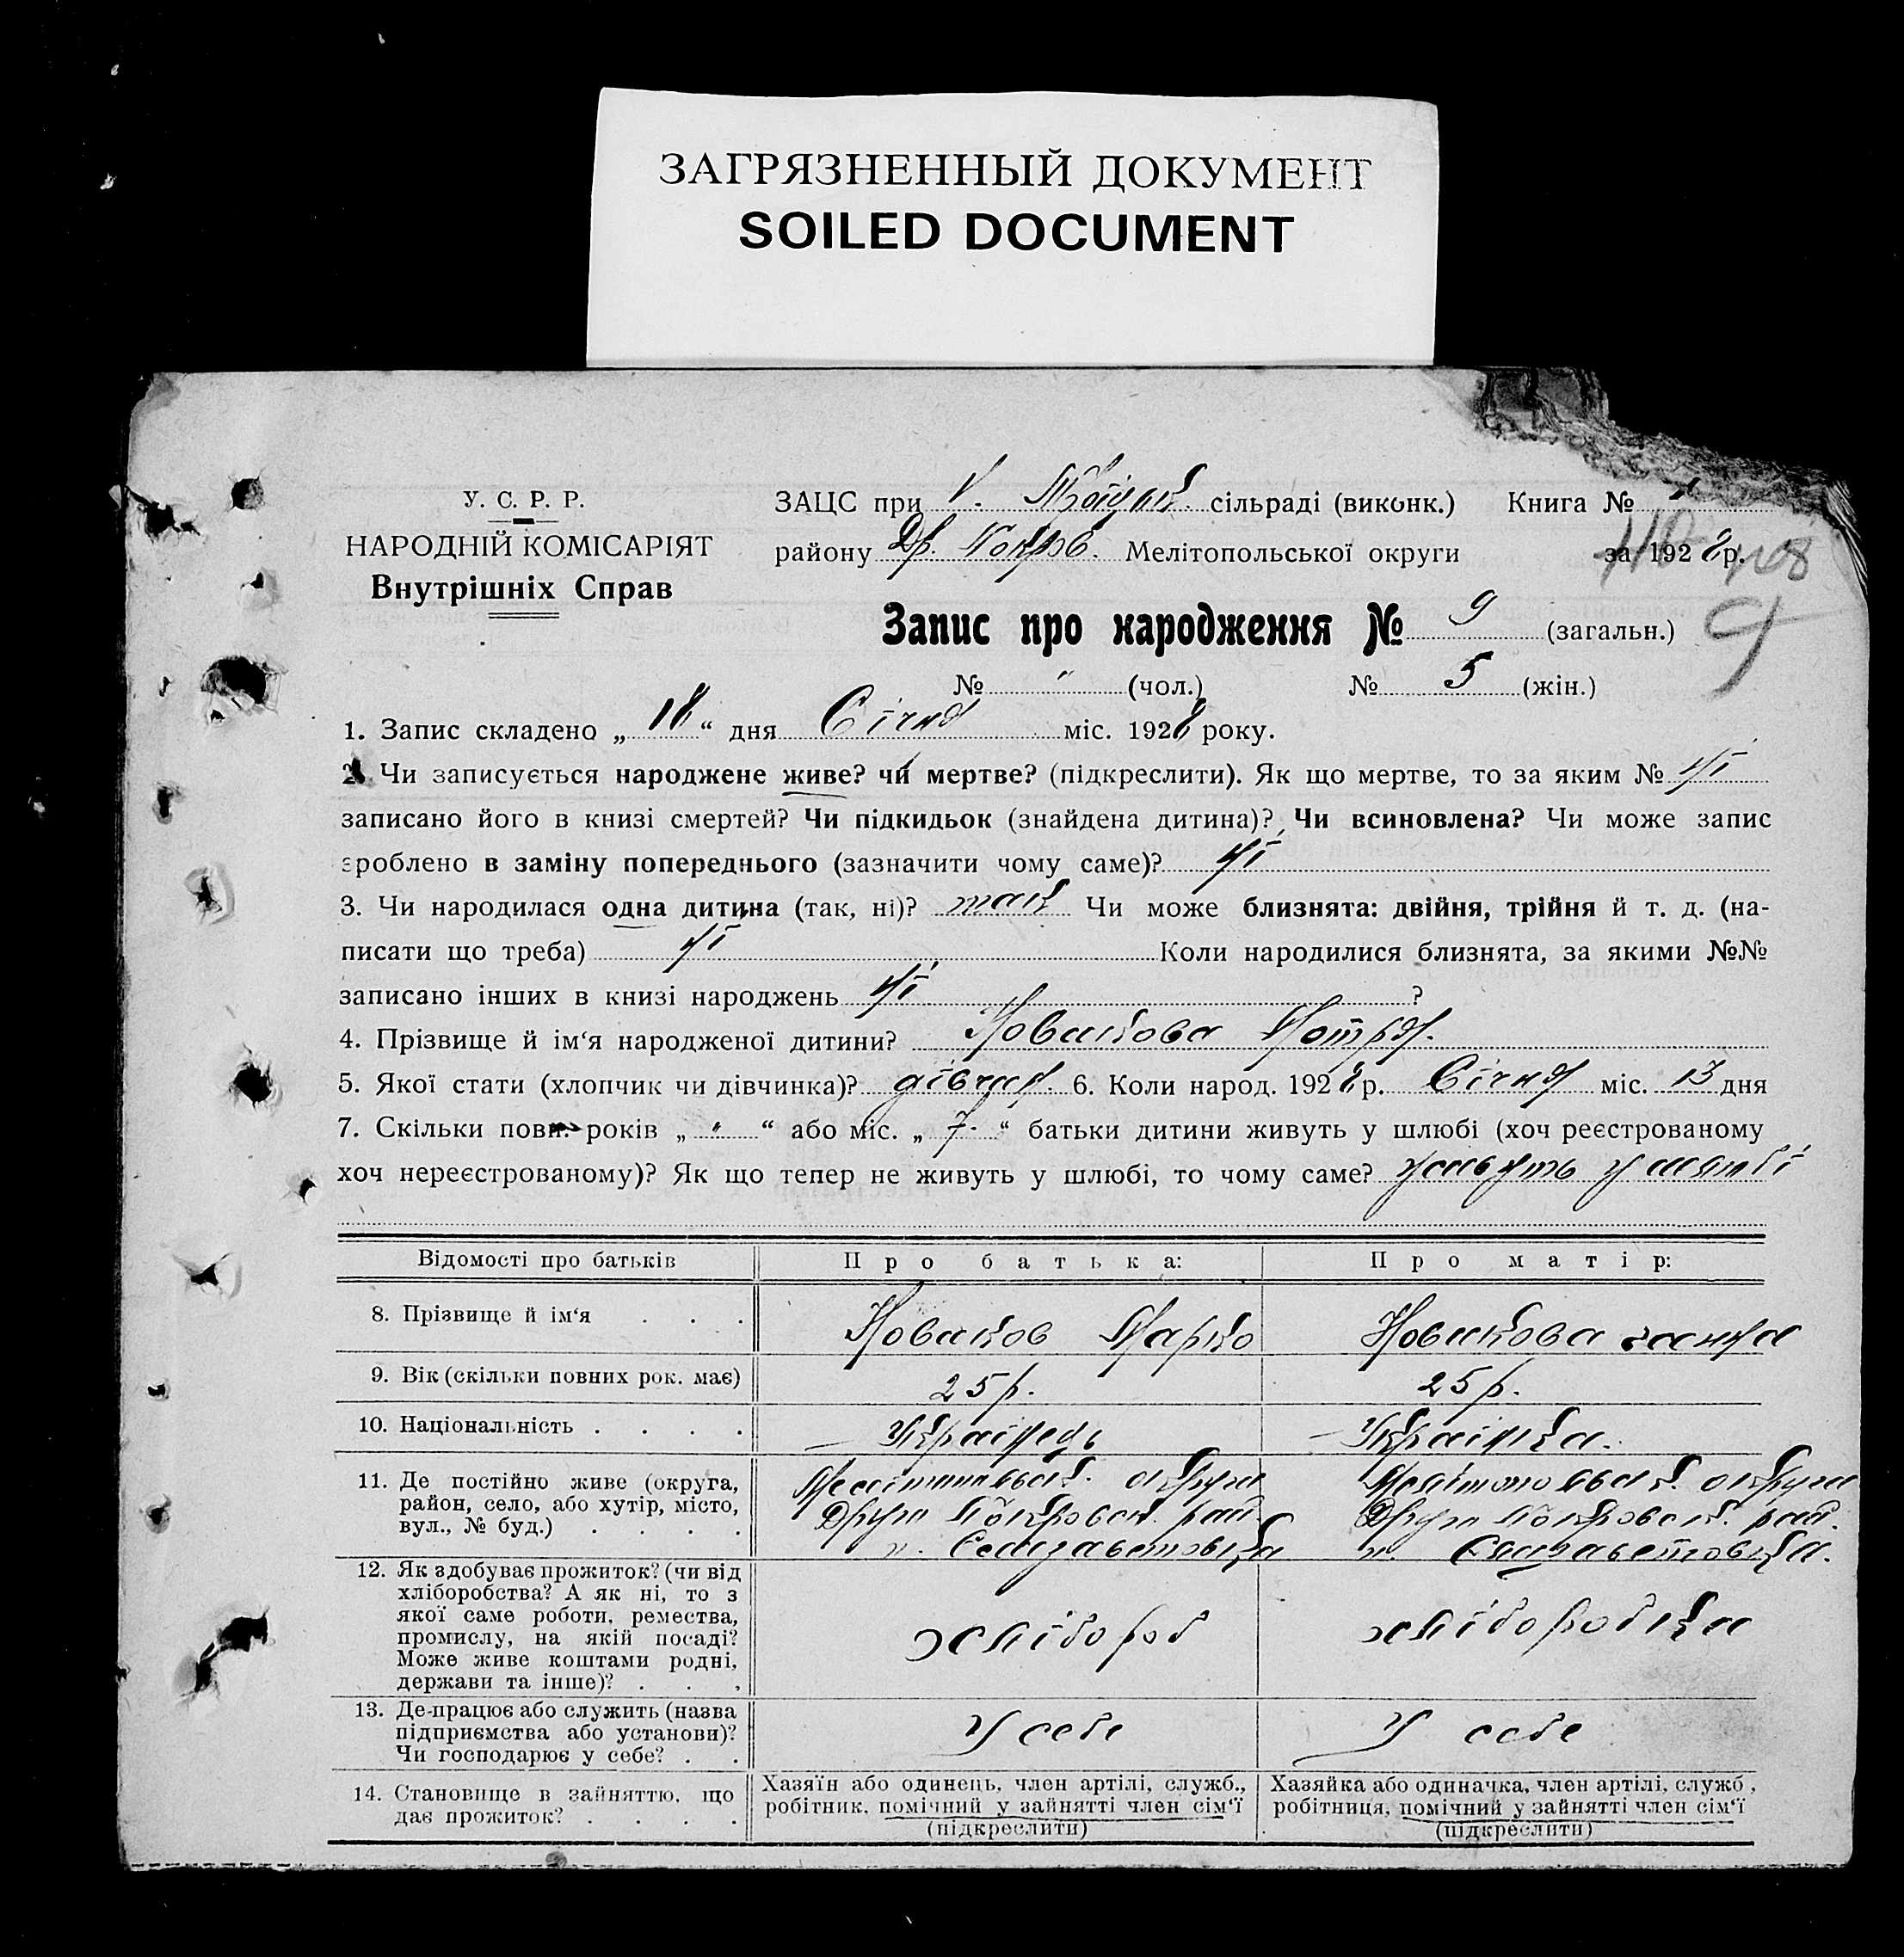 ЗАГРЯЗНЕННЫЙ ДОКУМЕНТ
SOILED DOCUMENT
У. С. Р. Р.
НАРОДНІЙ КОМІСАРІЯТ
Внутрішніх Справ
ЗАЦС при сільраді (виконк.) Книга №
району Др. Покров. Мелітопольської округи за 1928 р.
Запис про народження № 9 (загальн.)
9
№ " (чол.) № 5 (жін.)
1. Запис складено „ 18 “ дня Січня міс. 1928 року.
2. Чи записується народжене живе? чи мертве? (підкреслити). Як що мертве, то за яким № ні
записано його в книзі смертей? Чи підкидьок (знайдена дитина)? Чи всиновлена? Чи може запис
зроблено в заміну попереднього (зазначити чому саме)? ні
3. Чи народилася одна дитина (так, ні)? так Чи може близнята: двійня, трійня й т. д. (на-
писати що треба) ні Коли народилися близнята, за якими №№
записано інших в книзі народжень ні ?
4. Прізвище й ім‘я народженої дитини? Новакова Мотря.
5. Якої стати (хлопчик чи дівчинка)? дівчин. 6. Коли народ. 1928 р. Січня міс. 13 дня
7. Скільки повн. років „ " “ або міс. „ 7. “ батьки дитини живуть у шлюбі (хоч реєстрованому
хоч нереєстрованому)? Як що тепер не живуть у шлюбі, то чому саме? живуть у шлюбі
Відомості про батьків Про батька: Про матір:
8. Прізвище й ім‘я . . . Новаков Марко Новакова
9. Вік (скільки повних рок. має) 25 р. 25 р.
10. Національність . . . . Українець Українка.
11. Де постійно живе (округа, район, село, або хутір, місто, вул., № буд.) . . . .
Мелітопільськ. округи Мелітопольськ. округи
Друго Покровськ. рай. Друго Покровськ. рай.
п. Єлизаветовка п. Єлизаветовка.
12. Як здобуває прожиток? (чи від
хліборобства? А як ні, то з
якої саме роботи, ремества,
промислу, на якій посаді?
Може живе коштами родні,
держави та інше)? . . .
хлібороб хліборобка
13. Де-працює або служить (назва
підприємства або установи)?
Чи господарює у себе? . .
У себе У себе
14. Становище в зайняттю, що
дає прожиток? . . . .
Хазяїн або одинець, член артілі, служб.,
робітник, помічний у зайнятті член сім‘ї
(підкреслити)
Хазяйка або одиначка, член артілі, служб.,
робітниця, помічний у зайнятті член сім‘ї
(підкреслити)